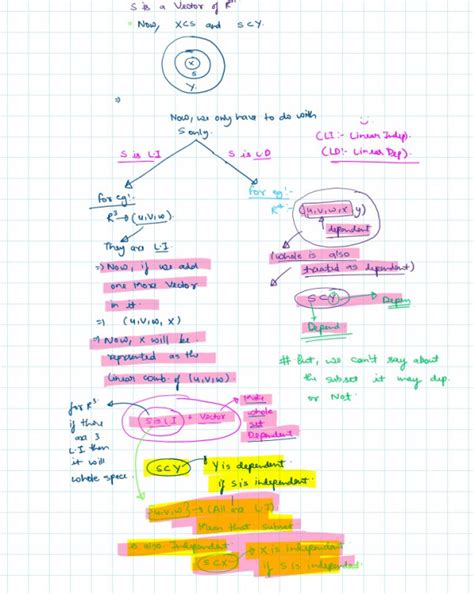 S is a Vector of Rⁿ
Now, XCS and SCY.
X
S
Y.
⇒
Now, we only have to do with
S only.
(LI:- Linear Indep).
(LD:- Linear Dep).
S is L.I
S is LD
for eg:-
R³→(u,v,w)
They are L.I
⇒ Now, if we add
one more vector
in it.
⇒ (u,v,w,x)
⇒ Now, x will be
represented as the
linear comb. of (u,v,w)
for eg:-
(u,v,w,x,y)
dependent
(whole is also
treated as dependent)
SCY → Depen
Depend
# But, we can't say about
the subset it may dep.
or Not.
for R³
if there
are 3
L.I then
it will
whole space.
S is LI + Vector
Make
whole
set
Dependent
SCY
Y is dependent
if S is independent.
u,v,w} → (All are L.I)
Mean that subset
is also Independent
SCX
X is independent
if S is independent